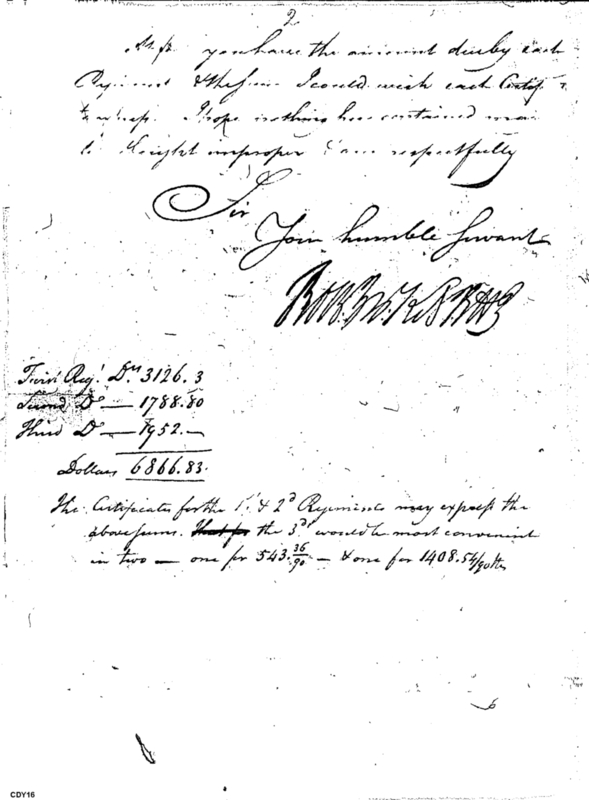 2
you have the amount due by each
Regiment & the sum I could wish each Certif
to express. I hope nothing here contained may
be thought improper I am respectfully
Sir
Your humble Servant
First Regt. Drs 3126. 3
Second Do — 1788.80
Third Do — 1952. —
Dollars 6866.83.
The Certificates for the 1st. & 2d Regiments may express the
above sums. That for the 3d. would be most convenient
in two — one for 543.36/90 — & one for 1408.54/90ths
CDY16